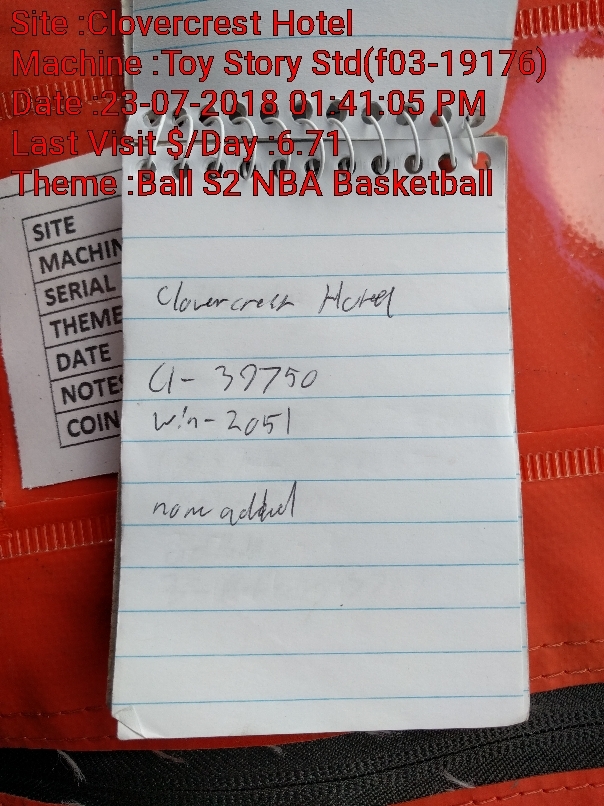 Site :Clovercrest Hotel
Machine :Toy Story Std(f03-19176)
Date :23-07-2018 01:41:05 PM
Last Visit $/Day :6.71
Theme :Ball S2 NBA Basketball
SITE
MACHIN
SERIAL
THEME
DATE
NOTES
COIN
Clovercrest Hotel
C1- 39750
Win- 2051
none added